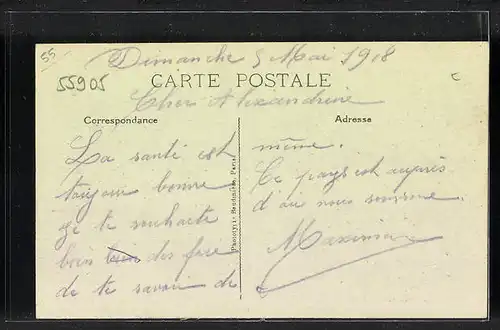 55
Dimanche 5 Mai 1918
55905
CARTE POSTALE
Cher Alexandrine
Correspondance
La santé est
toujour bonne
je te souhaite
bien des
de te savoir de
Phototypie Baudinière, Paris
Adresse
même.
Ce pays est auprès
d'au nous somme